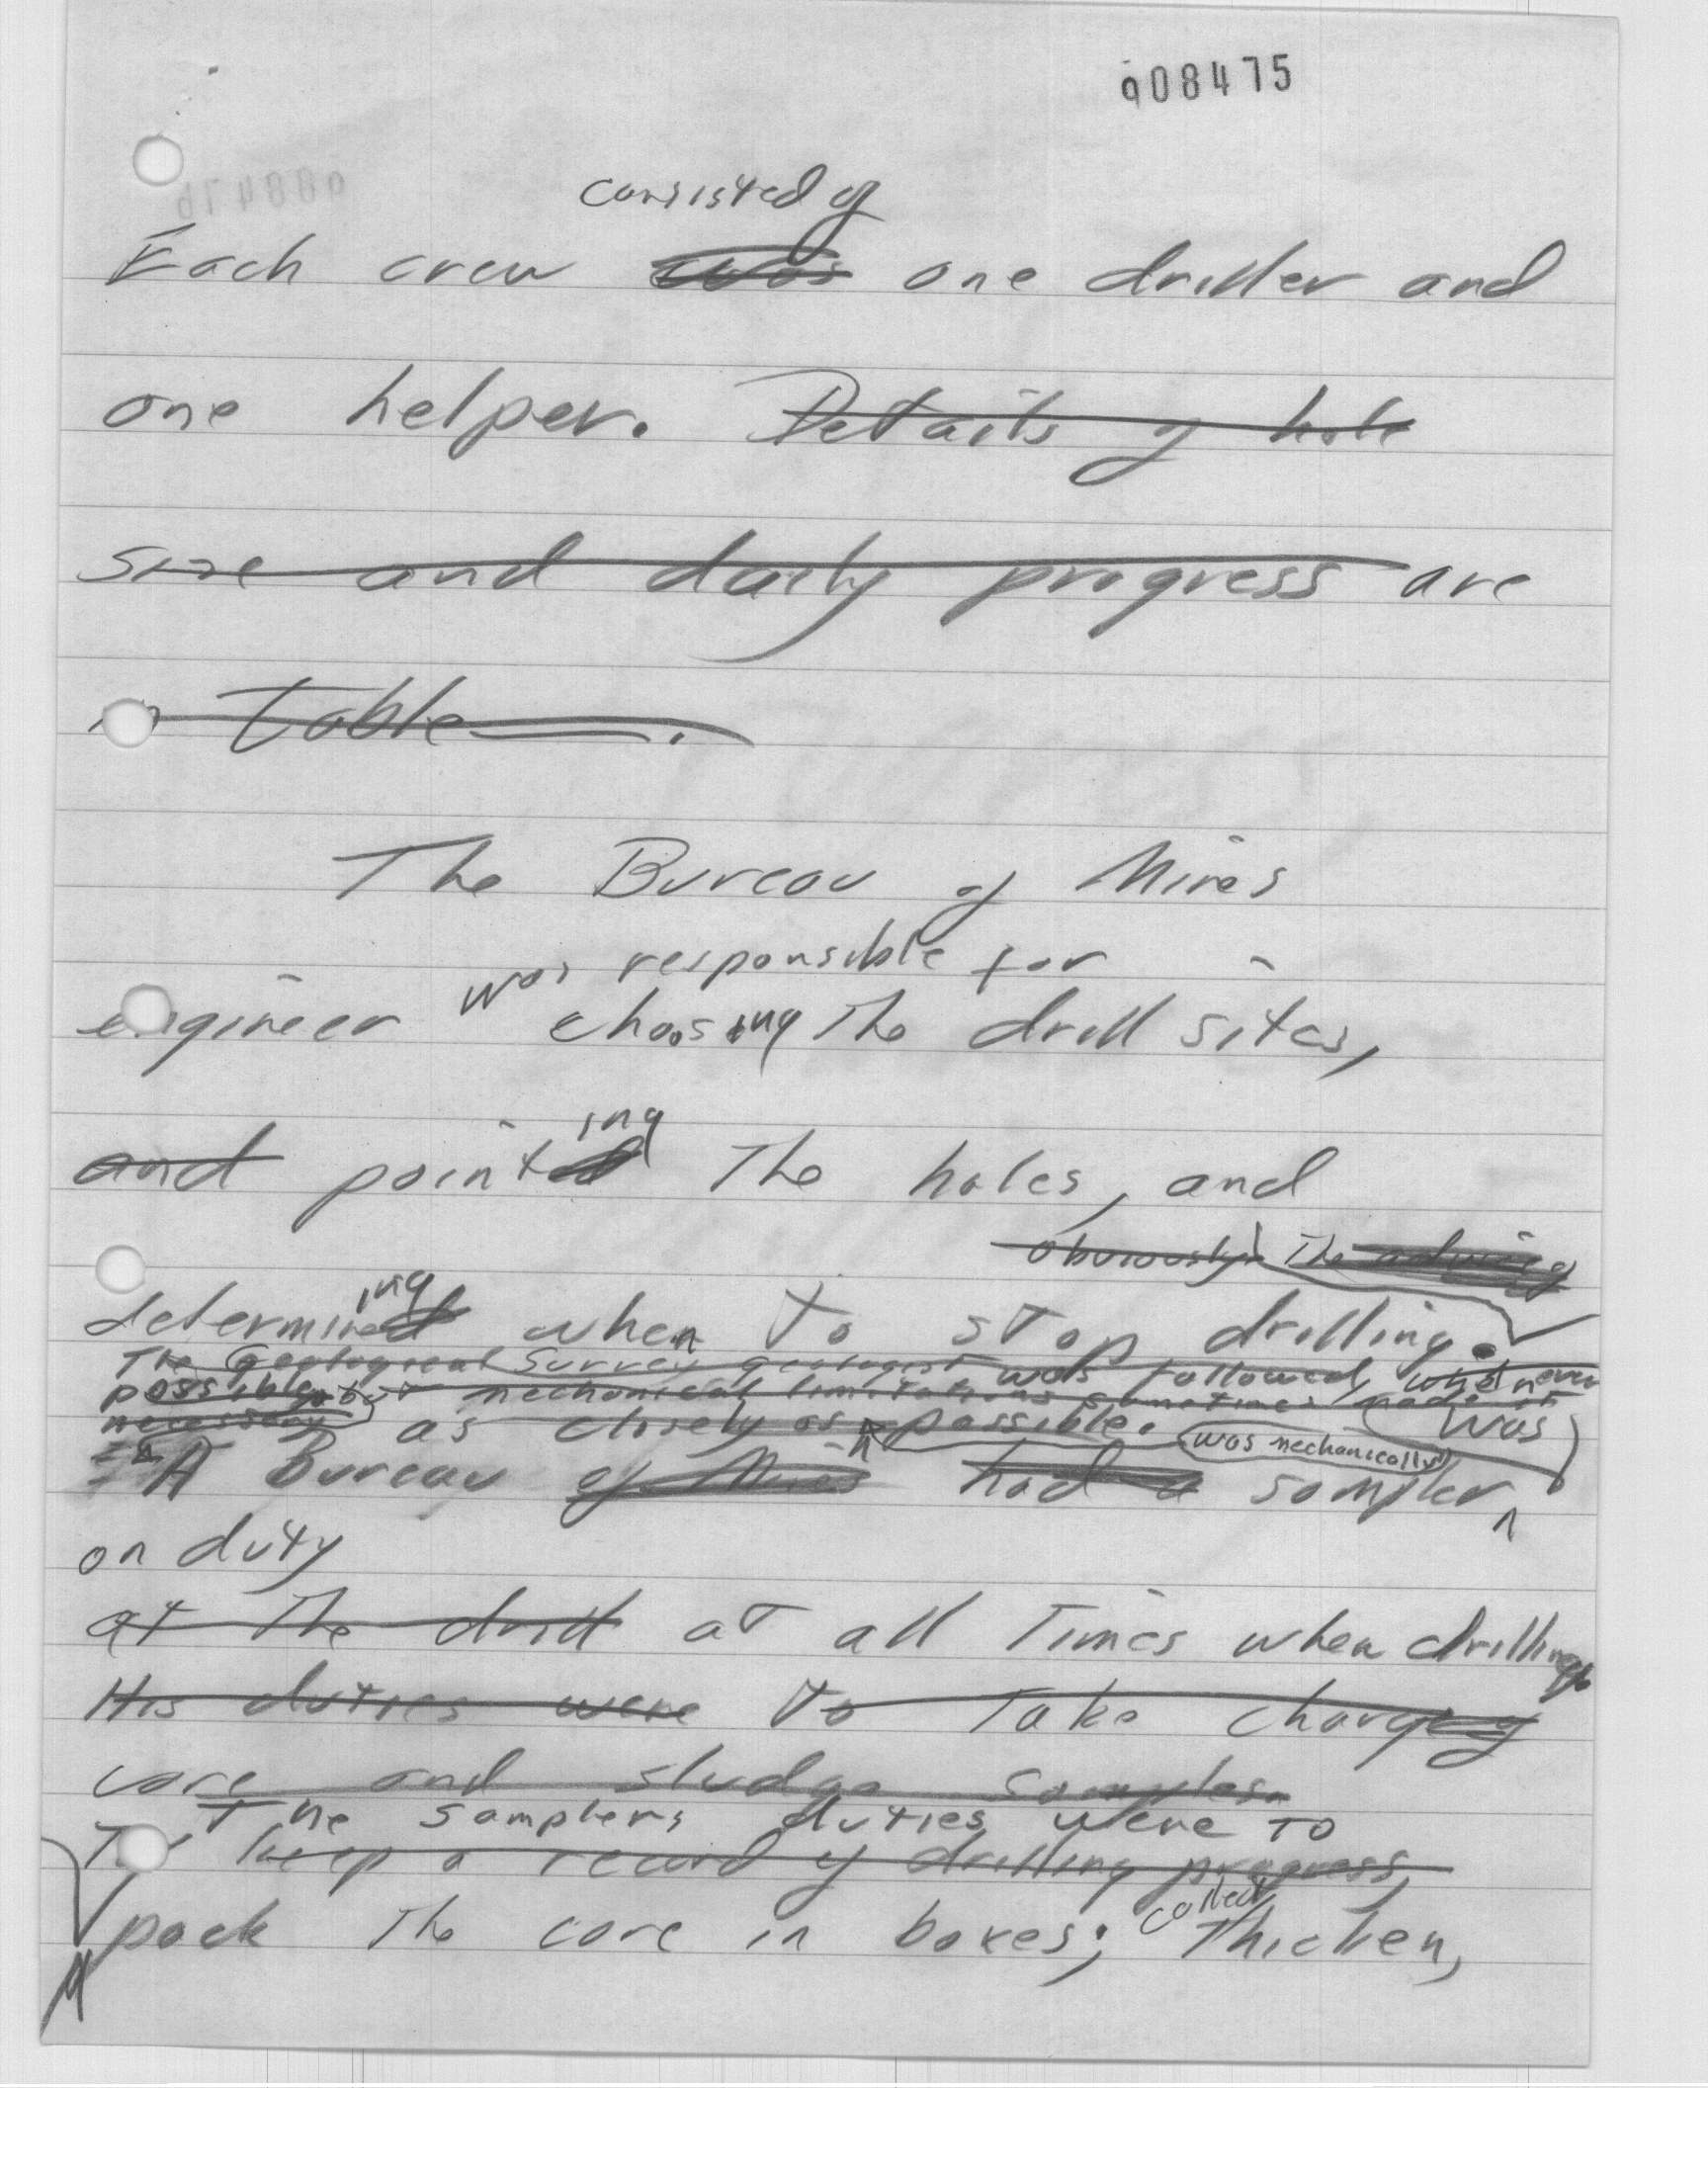 908475
consisted of
Each crew was one driller and
one helper. Details of hole
size and daily progress are
in table .
The Bureau of Mines
was responsible for
engineer choosing the drill sites,
ing
and pointed The holes, and
obviously The
ing
determined when To stop drilling.
The Geological Survey geologist was followed, whenever
possible, but mechanical limitations sometimes made it
necessary as closely as possible. was
was mechanically
A Bureau of Mines had a sampler
on duty
at The drill at all Times when drilling
His duties were To Take charge of
core and sludge samples.
The samplers duties were To
To keep a record of drilling progress,
collect,
pack The core in boxes; Thicken,